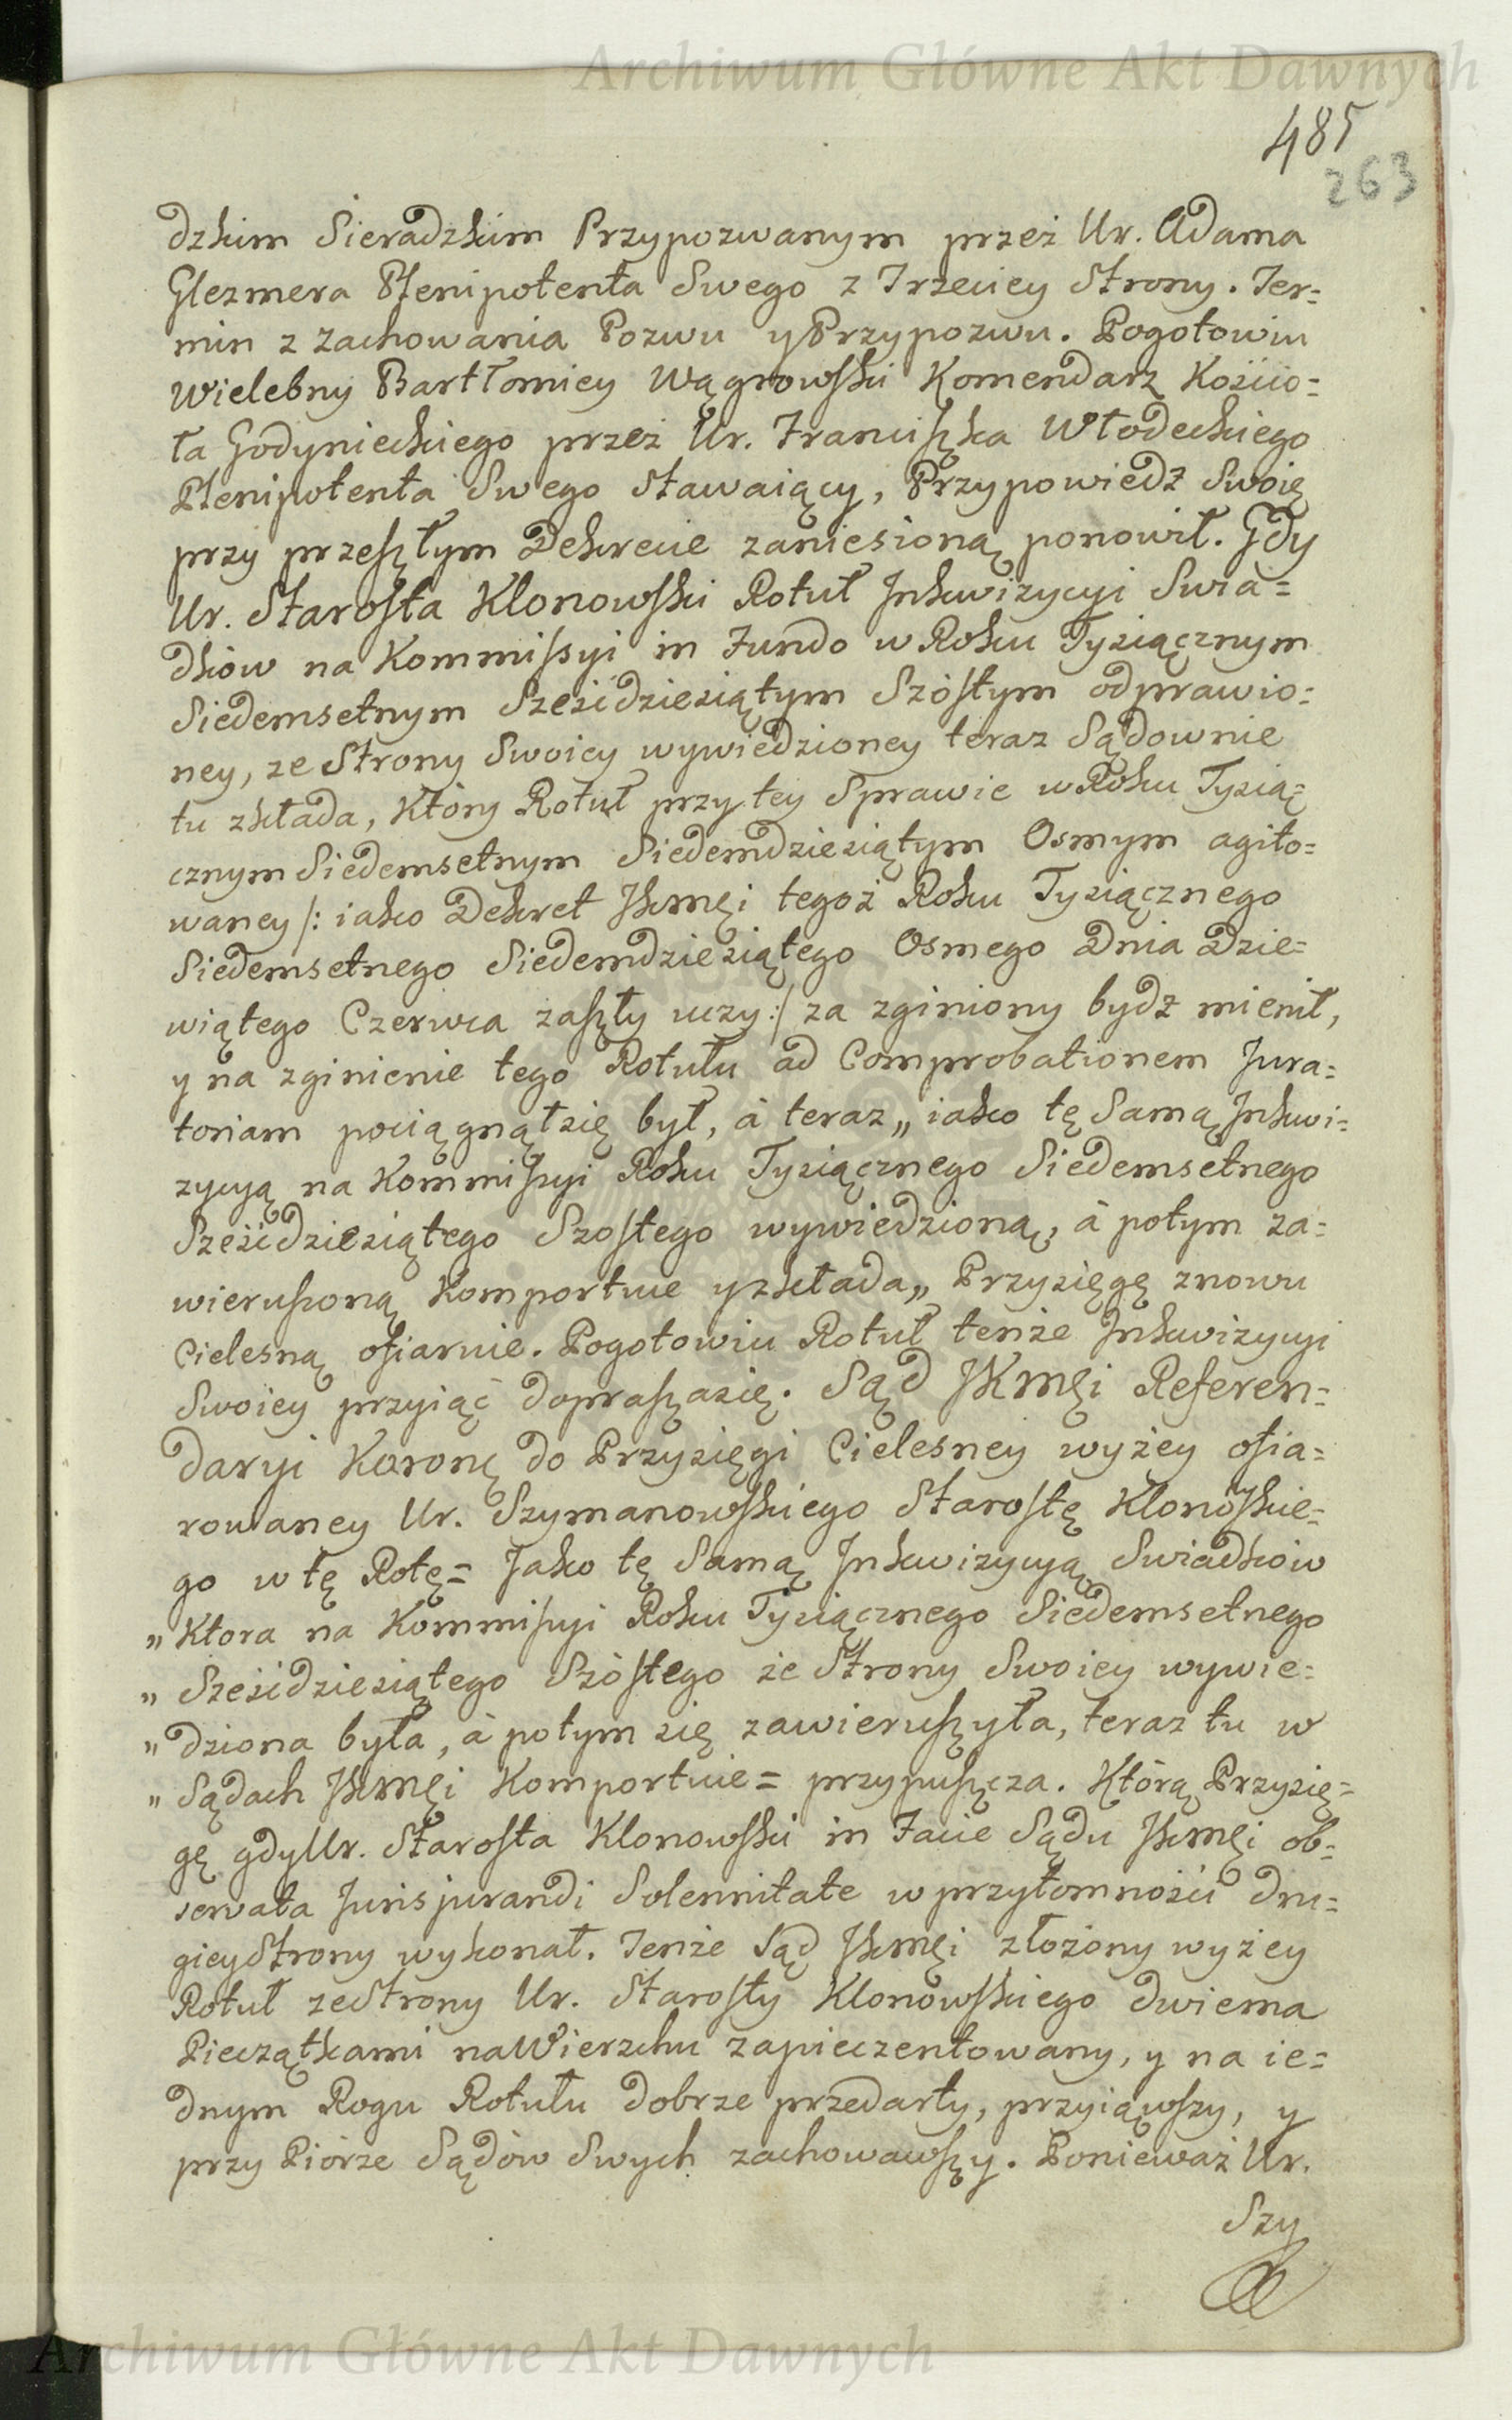 Archiwum Główne Akt Dawnych
485
263
dzkim Sieradzkim Przypozwanym przez Ur. Adama
Glezmera Plenipotenta Swego z Trzeciey Strony. Ter=
min z zachowania Pozwu y Przypozwu. Pogotowiu
Wielebny Bartłomiey Wągrowski Komendarz Kościo=
ła Godynieckiego przez Ur. Franciszka Włodeckiego
Plenipotenta Swego stawaiący, Przypowiedź Swoię
przy przeszłym Dekrecie zaniesioną ponowił. Gdy
Ur. Starosta Klonowski Rotuł Inkwizycyi Swia=
dków na Kommissyi in Fundo w Roku Tysiącznym
Siedemsetnym Sześćdziesiątym Szóstym odprawio=
ney, ze Strony Swoiey wywiedzioney teraz Sądownie
tu zkłada, Który Rotuł przy tey Sprawie w Roku Tysią=
cznym Siedemsetnym Siedemdziesiątym Osmym agito=
waney /: iako Dekret JKmci tegoż Roku Tysiącznego
Siedemsetnego Siedemdziesiątego Osmego Dnia Dzie=
wiątego Czerwca zaszły uczy :/ za zginiony bydź mienił,
y na zginienie tego Rotułu ad Comprobationem Jura=
toriam pociągnął się był, à teraz „ iako tę Samą Inkwi=
zycyą na Kommissyi Roku Tysiącznego Siedemsetnego
Sześćdziesiątego Szostego wywiedzioną, à potym za=
wieruszoną Komportuie y zkłada „ Przysięgę znowu
Cielesną ofiaruie. Pogotowiu Rotuł tenże Inkwizycyi
Swoiey przyiąć doprasza się. Sąd JKmci Referen=
daryi Koronę do Przysięgi Cielesney wyżey ofia=
rowaney Ur. Szymanowskiego Starostę Klonowskie=
go w tę Rotę = Jako tę Samą Inkwizycyą Swiadków
„ Ktora na Kommissyi Roku Tysiącznego Siedemsetnego
„ Sześćdziesiątego Szóstego ze Strony Swoiey wywie=
„ dziona była, à potym się zawieruszyła, teraz tu w
„ Sądach JKmci Komportuie = przypuszcza. Którą Przysię=
gę gdy Ur. Starosta Klonowski in Facie Sądu JKmci ob=
servata Jurisjurandi Solennitate w przytomności dru=
giey Strony wykonał. Tenże Sąd JKmci złożony wyżey
Rotuł ze Strony Ur. Starosty Klonowskiego dwiema
Pieczątkami na Wierzchu zapieczentowany, y na ie=
dnym Rogu Rotułu dobrze przedarty, przyiąwszy, y
przy Piórze Sądów Swych zachowawszy. Ponieważ Ur.
Szy
Archiwum Główne Akt Dawnych